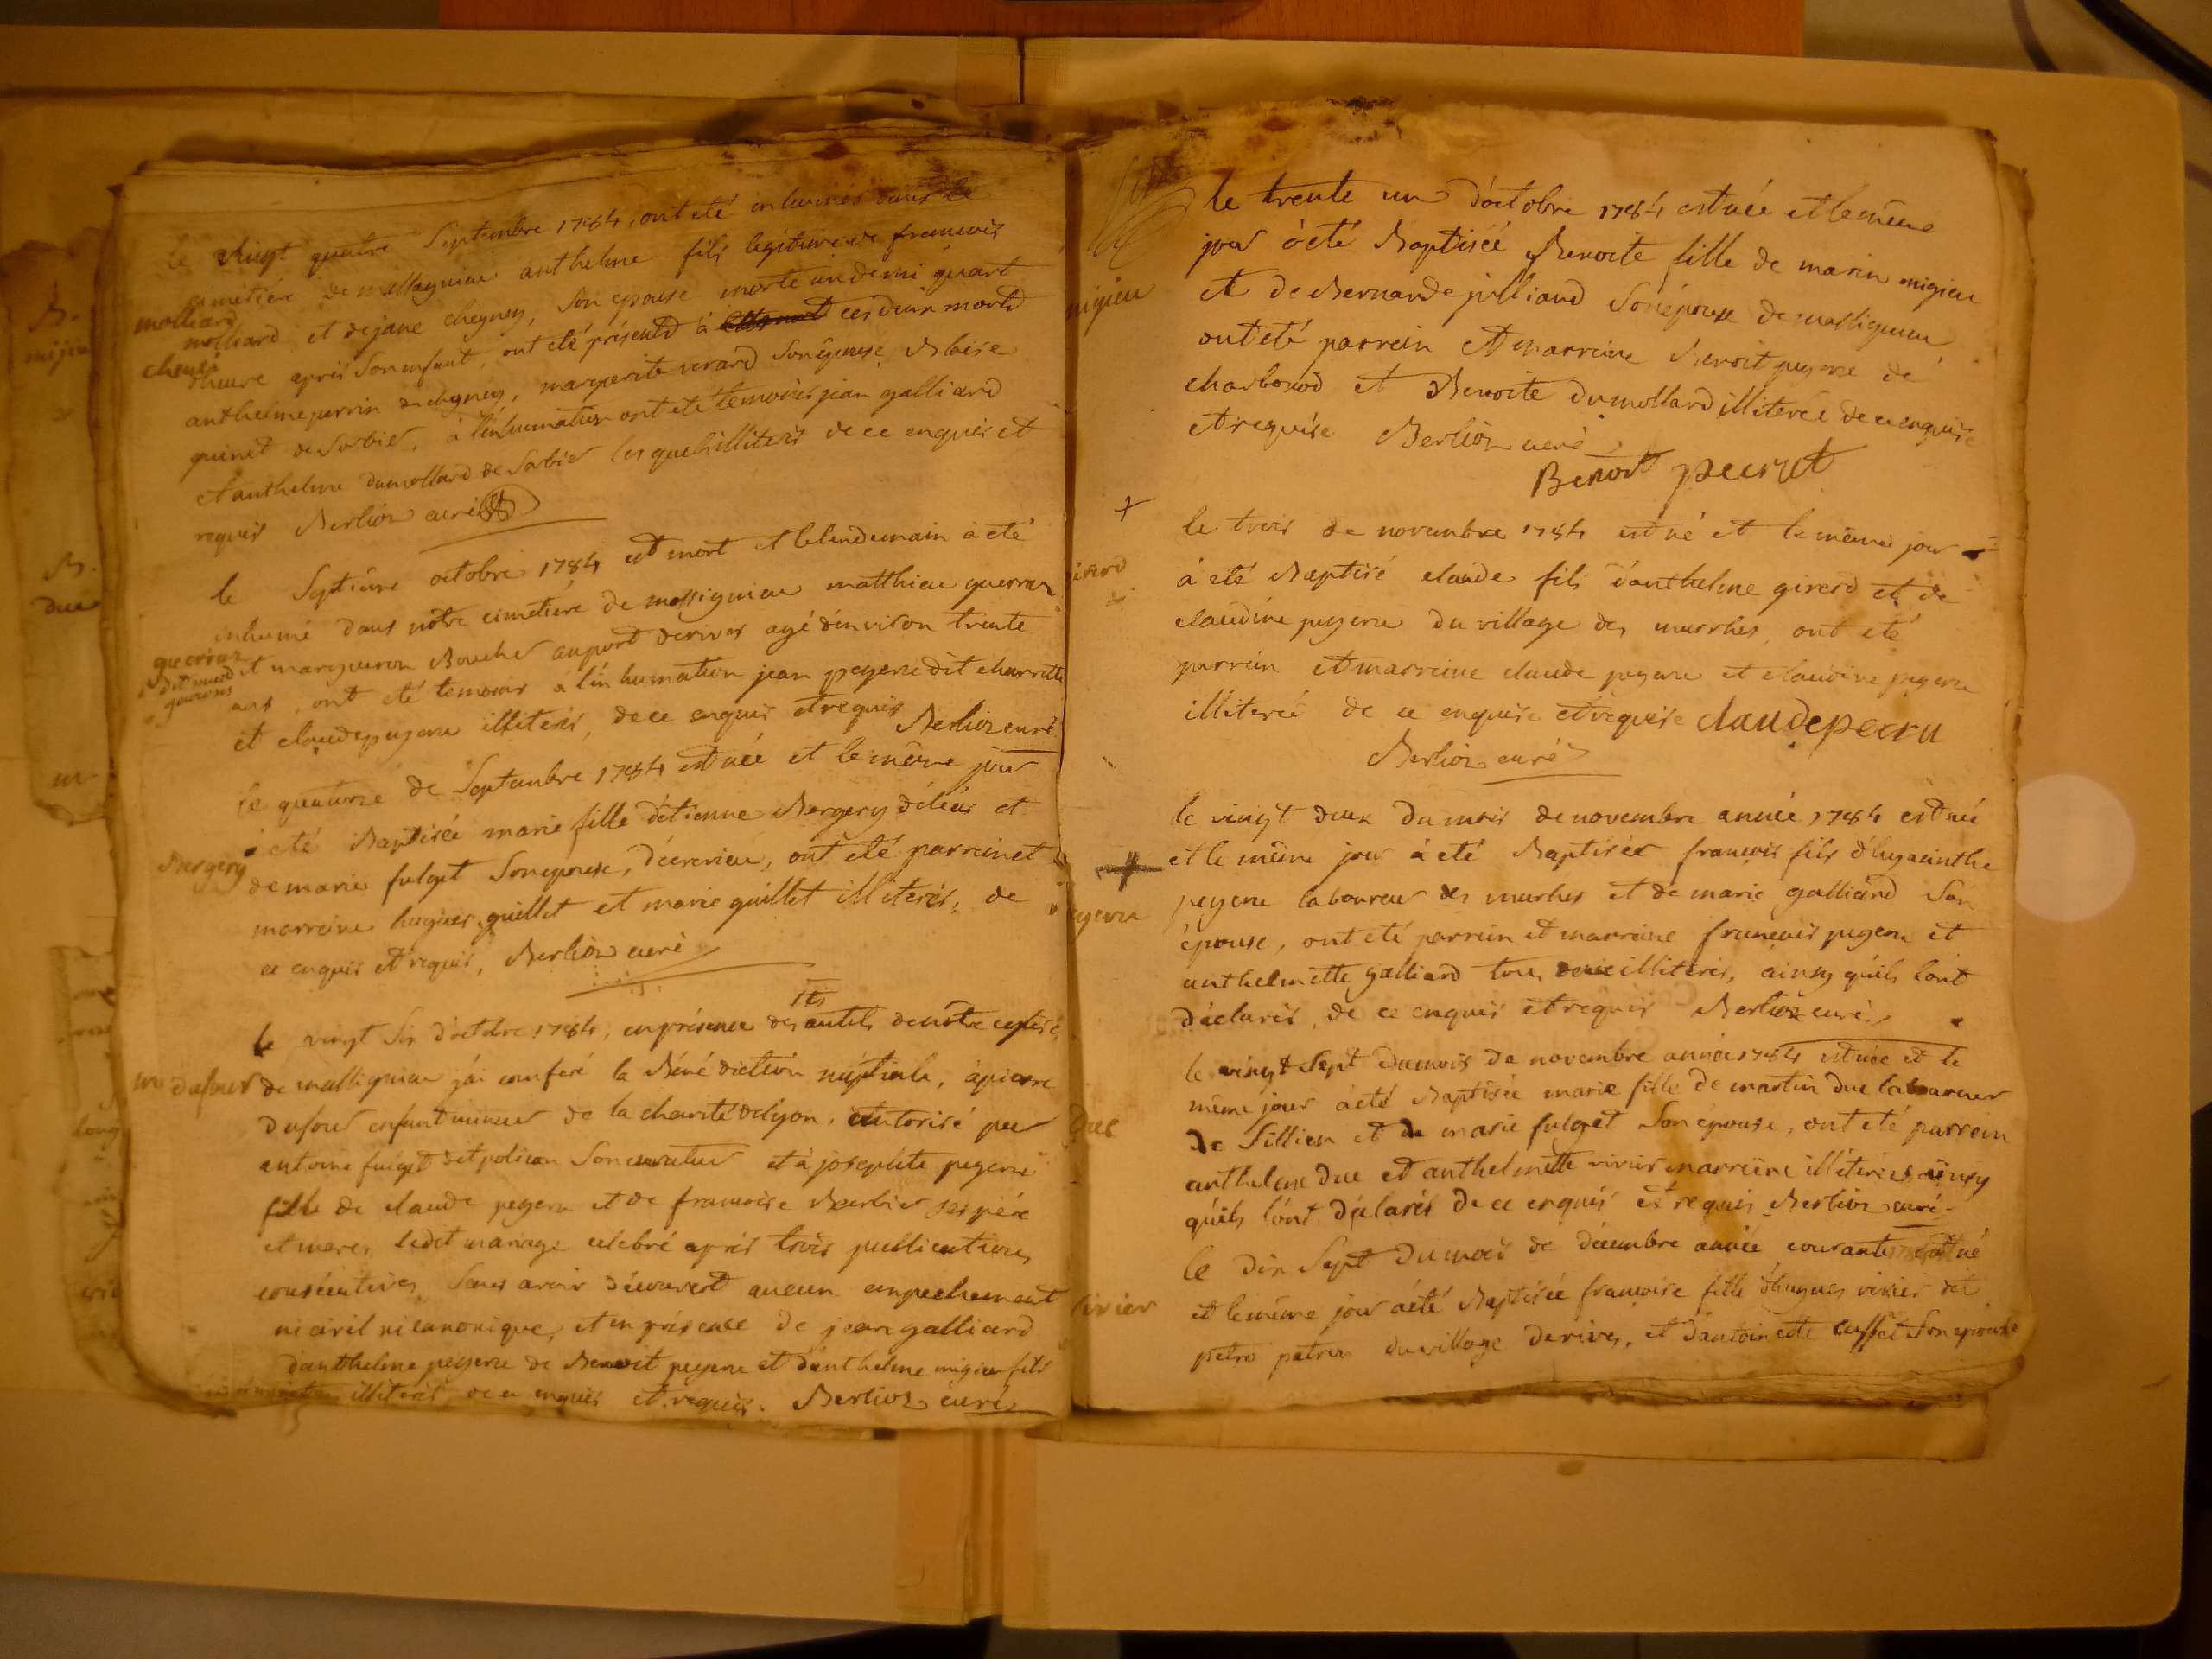 le vingt quatre Septembre 1784, ont eté inhumés dans le
cimetiére de massigniau anthelme fils legitime de francois
molliard
molliard et de jane chegney, son epouse morte un demi quart
chené
d'heure aprés son enfant, ont eté présents à ces deux morts
anthelme perrin chegney, marguerite verard son épouse, Blaise
guinet de Sorbier, à l'inhumation ont été temoins jean galliard
et anthelme dumollard de Sorbier lesquels illiterés de ce enquis et
requis Berlioz curé
le Septiéme octobre 1784 est mort et le lendemain à eté
inhumé dans nôtre cimetiére de massigniau matthieu guerraz
guerraz
dit marqueron Bouché au port de rives agé d'environ trente
ans, ont eté temoins à l'in humation jean pegere dit charrette
et claude pugere illiterés, de ce enquis et requis Berlioz curé
le quatorze de Septambre 1784 est née et le même jour
à eté Baptisée marie fille d'etienne Bergery et
Bergery
de marie fulget son epouse, ont eté parrein et
marreine hugues guillet et marie guillet illiterés, de
ce enquis et requis, Berlioz curé
le vingt Six d'octobre 1784, en présence des autels de notre eglise
de massigniau j'ai conferé la Béné diction nuptiale, à pierre
dufour
dufour enfant mineur de la charité de lyon, autorisé par
antoine fulget dit polican son curateur et à josephte pegere
fille de claude pegere et de francoise Barbier ses pére
et mere, ledit mariage celebré aprés trois publications
consécutives sans avoir décuvert aucun anpechement
ni civil ni canonique, et en présence de jean galliard
d'anthelme pegere de Benoit pegere et d'anthelme migieu fils
illiterés, de ce enquis et requis. Berlioz curé
le trente un d'octobre 1784 est née et le même
jour à eté Baptisée Benoite fille de marin migieu
migieu
et de Bernarde julliard son épouse de massigneu,
ont eté parrein et marreine Benoit pegere de
charbonod et Benoite dumollard illiterée de ce enquise
et requise Berlioz curé
Benoit peeryt
+
le trois de novembre 1784 est né et le même jour
à eté Baptisé claude fils d'anthelme girerd et de
claudine pegere du village des murches, ont eté
parrein et marreine claude pegere et claudine pegere
illiterée de ce enquise et requise claude peeru
Berlioz curé
le vingt deux du mois de novembre année 1784 est né
et le même jour à eté Baptisée francois fils d'hyacinthe
+
pegere laboureur des murhes et de marie galliard son
épouse, ont eté parrein et marreine francois pegere et
anthelmette galliard tous deux illiterés, ainsy qu'ils l'ont
déclarés, de ce enquis et requis Berlioz curé
le vingt Sept du mois de novembre année 1784 est née et le
même jour à eté Baptisée marie fille de martin duc laboureur
duc
de Sillien et de marie fulget Son épouse, ont eté parrein
anthelme duc et anthelmette vivier marreine illiterés ainsy
qu'ils l'ont déclarés de ce enquis et requis Berlioz curé
le dix Sept du mois de décembre année courante est né
et le même jour à eté Baptisée francoise fille d'hugues vivier dit
vivier
petre patres du village de rives, et d'antoinette cusset Son epouse